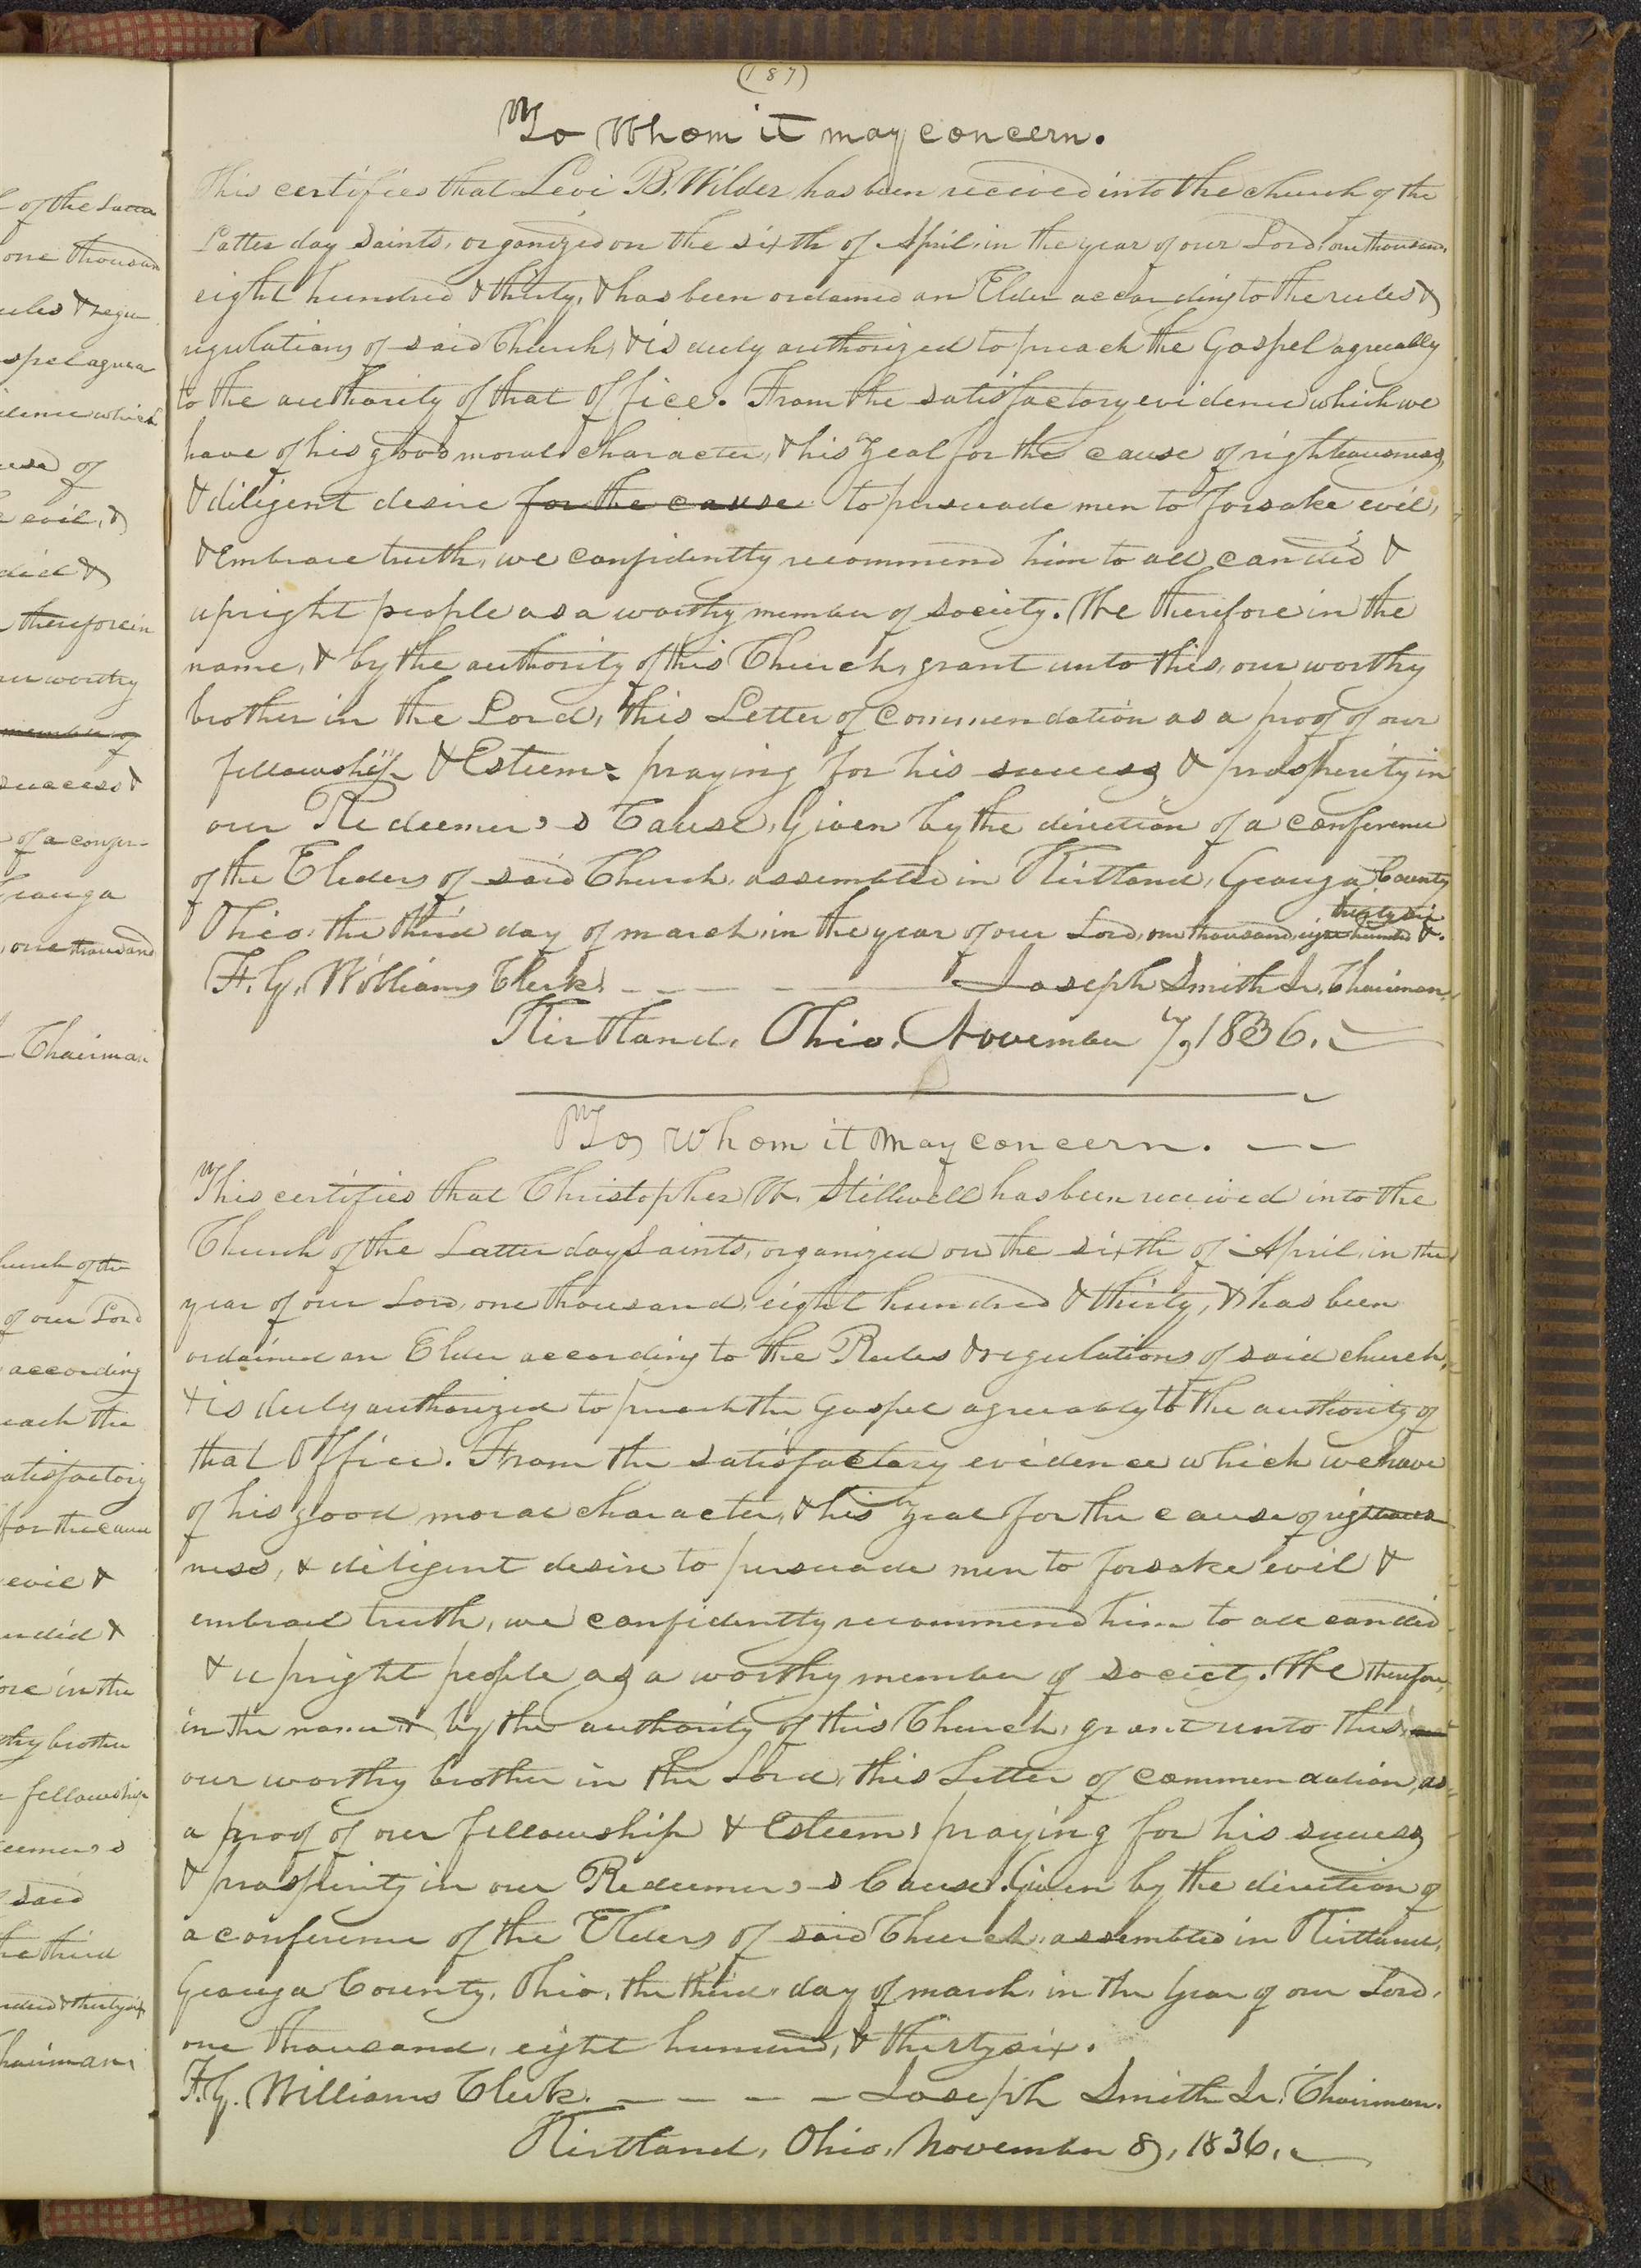 (187)
To Whom it may concern.
This certifies that Levi B. Wilder has been received into the church of the
Latter day Saints, organized on the sixth of April, in the year of our Lord, one thousand,
eight hundred & thirty, & has been ordained an Elder according to the rules &
regulations of said Church, & is duly authorized to preach the Gospel agreeably
to the authority of that office. From the satisfactory evidence which we
have of his good moral character, & his zeal for the cause of righteousness,
& diligent desire for the cause to persuade men to forsake evil,
& Embrace truth, we confidently recommend him to all candid &
upright people as a worthy member of society. We therefore in the
name, & by the authority of this Church, grant unto this, our worthy
brother in the Lord, this Letter of commendation as a proof of our
fellowship & Esteem: praying for his success & prosperity in
our Redeemer's Cause, Given by the direction of a conference
of the Elders of said Church, assembled in Kirtland, Geauga County
thirty six
Ohio, the third day of march, in the year of our Lord, one thousand, eight hundred &.
F. G. Williams Clerk. — — — Joseph Smith Jr. Chairman.
Kirtland, Ohio, November 7, 1836.
To Whom it may concern. — —
This certifies that Christopher W. Stillwell has been received into the
Church of the Latter day Saints, organized on the sixth of April, in the
year of our Lord, one thousand, eight hundred & thirty, & has been
ordained an Elder according to the Rules & regulations of said church,
& is duly authorized to preach the Gospel agreeably to the authority of
that Office. From the satisfactory evidence which we have
of his good moral character, & his zeal for the cause of righteous
ness, & diligent desire to persuade men to forsake evil &
embrace truth, we confidently recommend him to all candid
& upright people as a worthy member of society. We therefore,
in the name & by the authority of this Church, grant unto this,
our worthy brother in the Lord, this Letter of commendation, as
a proof of our fellowship & Esteem, praying for his success
& prosperity in our Redeemer's Cause. Given by the direction of
a conference of the Elders of said Church, assembled in Kirtland,
Geauga County, Ohio, the third day of march, in the year of our Lord,
one thousand, eight hundred, & thirty six.
F. G. Williams Clerk. — — — — Joseph Smith Jr. Chairman.
Kirtland, Ohio, November 8, 1836.
of the Latter
one thousand
rules & regu
spel agrea
idence which
of
evil, &
&
therefore in
our worthy
member of
success &
of a confer-
Geauga
one thousand
Chairman
church of the
of our Lord
according
each the
satisfactory
for the cause
evil &
andid &
ore in the
thy brother
fellowship
eemer's
said
he third
ndred & thirty six
hairman